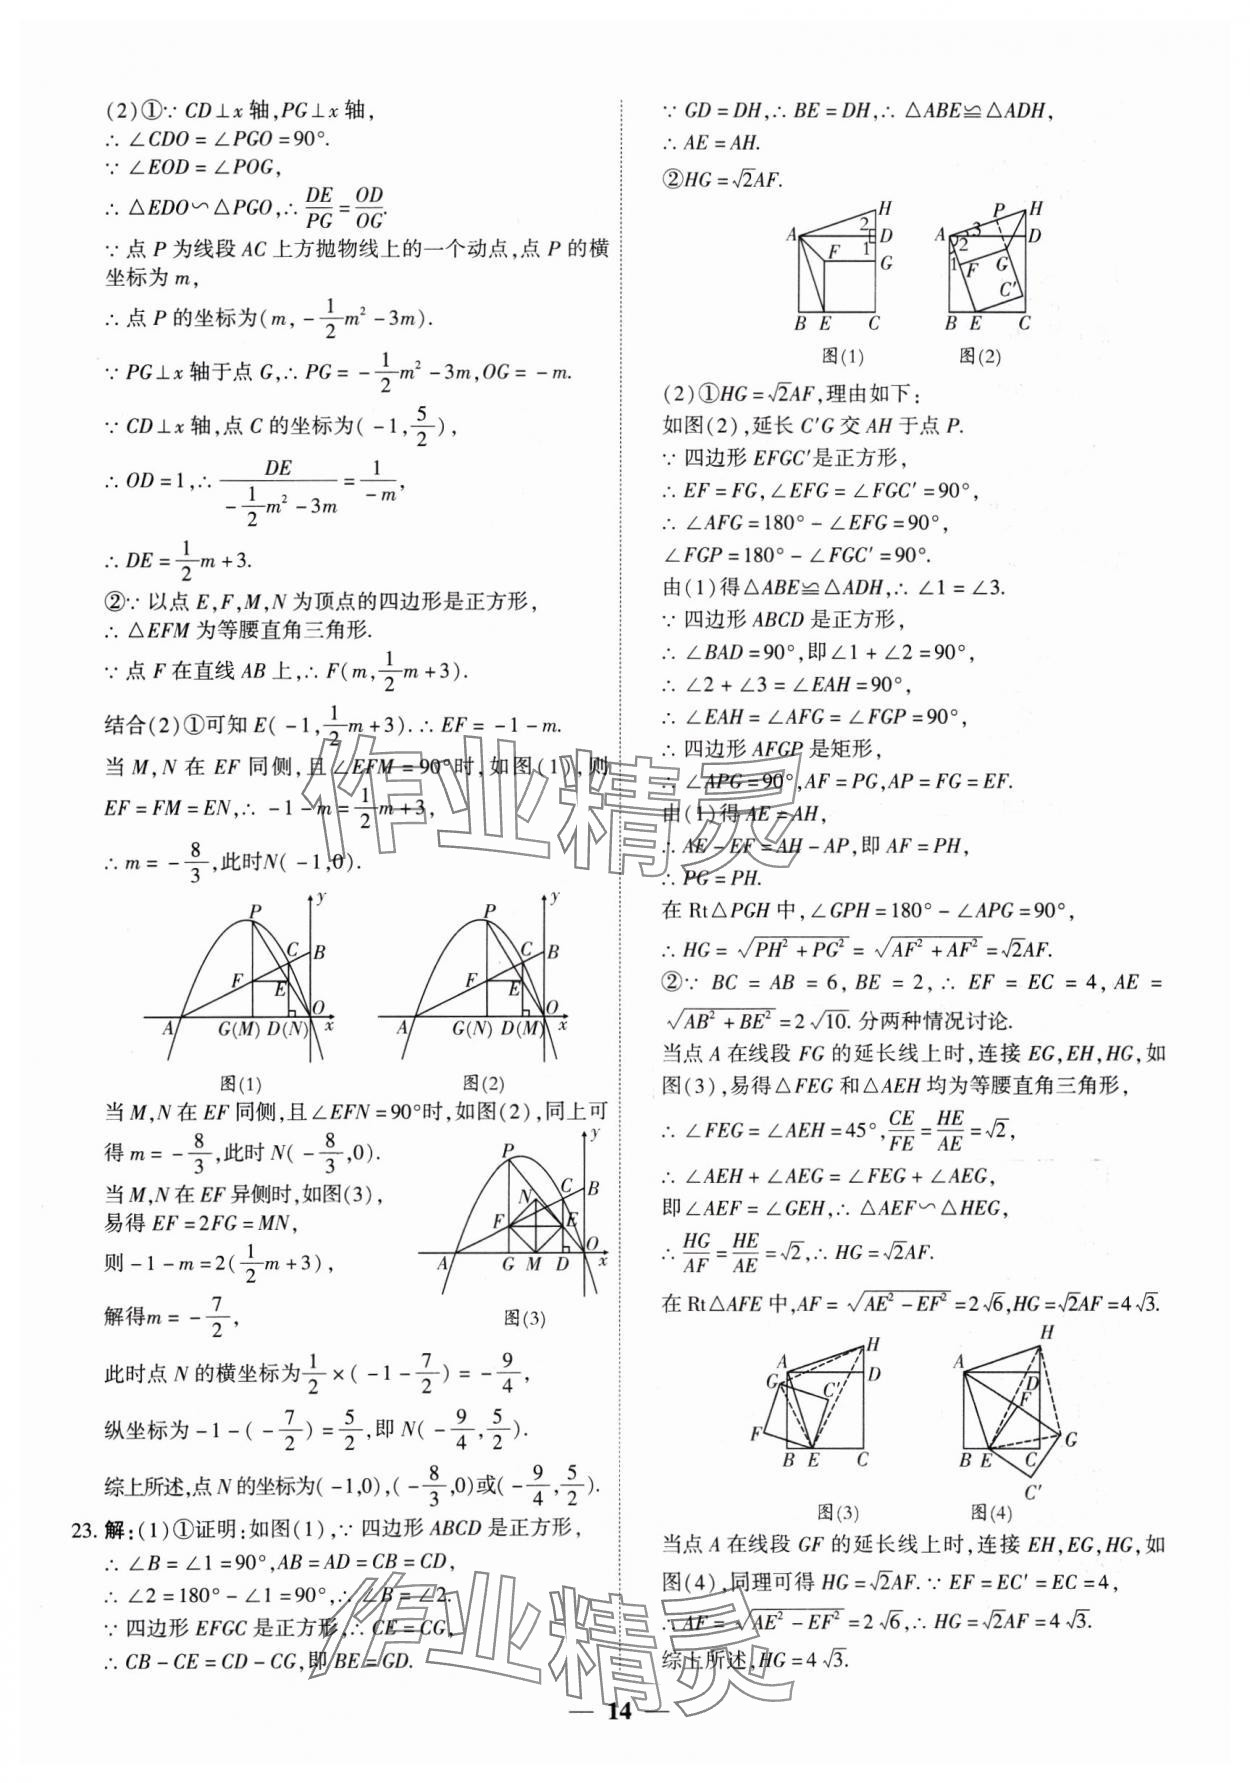 (2)①∵ CD⊥x 轴,PG⊥x 轴,
∴ ∠CDO=∠PGO=90°.
∵ ∠EOD=∠POG,
∴ △EDO∽△PGO,∴ DE/PG=OD/OG.
∵ 点 P 为线段 AC 上方抛物线上的一个动点,点 P 的横
坐标为 m,
∴ 点 P 的坐标为(m,-1/2m²-3m).
∵ PG⊥x 轴于点 G,∴ PG=-1/2m²-3m,OG=-m.
∵ CD⊥x 轴,点 C 的坐标为(-1,5/2),
∴ OD=1,∴ DE/(-1/2m²-3m)=1/(-m),
∴ DE=1/2m+3.
②∵ 以点 E,F,M,N 为顶点的四边形是正方形,
∴ △EFM 为等腰直角三角形.
∵ 点 F 在直线 AB 上,∴ F(m,1/2m+3).
结合(2)①可知 E(-1,1/2m+3).∴ EF=-1-m.
当 M,N 在 EF 同侧,且∠EFM=90°时,如图(1),则
EF=FM=EN,∴ -1-m=1/2m+3,
∴ m=-8/3,此时N(-1,0).
y
P
C
B
F
E
O
A G(M) D(N) x
图(1)
y
P
C
B
F
E
O
A G(N) D(M) x
图(2)
当 M,N 在 EF 同侧,且∠EFN=90°时,如图(2),同上可
得 m=-8/3,此时 N(-8/3,0).
当 M,N 在 EF 异侧时,如图(3),
易得 EF=2FG=MN,
则-1-m=2(1/2m+3),
解得m=-7/2,
y
P
C
B
N
F
E
O
A G M D x
图(3)
此时点 N 的横坐标为1/2×(-1-7/2)=-9/4,
纵坐标为-1-(-7/2)=5/2,即 N(-9/4,5/2).
综上所述,点 N 的坐标为(-1,0),(-8/3,0)或(-9/4,5/2).
23. 解:(1)①证明:如图(1),∵ 四边形 ABCD 是正方形,
∴ ∠B=∠1=90°,AB=AD=CB=CD,
∴ ∠2=180°-∠1=90°,∴ ∠B=∠2.
∵ 四边形 EFGC 是正方形,∴ CE=CG,
∴ CB-CE=CD-CG,即 BE=GD.
∵ GD=DH,∴ BE=DH,∴ △ABE≌△ADH,
∴ AE=AH.
②HG=√2AF.
H
2
A D
F 1
G
B E C
图(1)
P H
A 3 D
2
1 F G
C′
B E C
图(2)
(2)①HG=√2AF,理由如下:
如图(2),延长 C′G 交 AH 于点 P.
∵ 四边形 EFGC′是正方形,
∴ EF=FG,∠EFG=∠FGC′=90°,
∴ ∠AFG=180°-∠EFG=90°,
∠FGP=180°-∠FGC′=90°.
由(1)得△ABE≌△ADH,∴ ∠1=∠3.
∵ 四边形 ABCD 是正方形,
∴ ∠BAD=90°,即∠1+∠2=90°,
∴ ∠2+∠3=∠EAH=90°,
∴ ∠EAH=∠AFG=∠FGP=90°,
∴ 四边形 AFGP 是矩形,
∴ ∠APG=90°,AF=PG,AP=FG=EF.
由(1)得 AE=AH,
∴ AE-EF=AH-AP,即 AF=PH,
∴ PG=PH.
在 Rt△PGH 中,∠GPH=180°-∠APG=90°,
∴ HG=√(PH²+PG²)=√(AF²+AF²)=√2AF.
②∵ BC=AB=6,BE=2,∴ EF=EC=4,AE=
√(AB²+BE²)=2√10.分两种情况讨论.
当点 A 在线段 FG 的延长线上时,连接 EG,EH,HG,如
图(3),易得△FEG 和△AEH 均为等腰直角三角形,
∴ ∠FEG=∠AEH=45°,CE/FE=HE/AE=√2,
∴ ∠AEH+∠AEG=∠FEG+∠AEG,
即∠AEF=∠GEH,∴ △AEF∽△HEG,
∴ HG/AF=HE/AE=√2,∴ HG=√2AF.
在 Rt△AFE 中,AF=√(AE²-EF²)=2√6,HG=√2AF=4√3.
H
A D
G
C′
F
B E C
图(3)
H
A
D
F
G
B E C
C′
图(4)
当点 A 在线段 GF 的延长线上时,连接 EH,EG,HG,如
图(4),同理可得 HG=√2AF.∵ EF=EC′=EC=4,
∴ AF=√(AE²-EF²)=2√6,∴ HG=√2AF=4√3.
综上所述,HG=4√3.
作业精灵
作业精灵
— 14 —